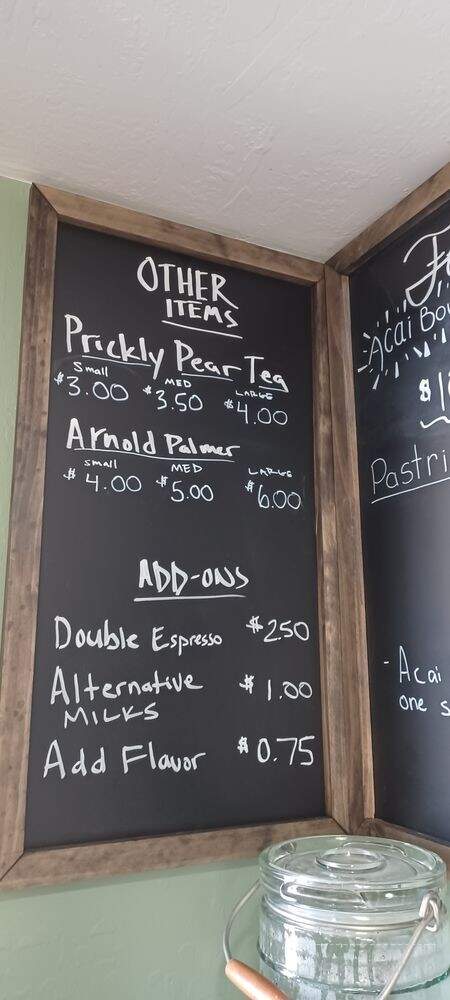 OTHER
ITEMS
Prickly Pear Tea
Small MED LARGE
$3.00 $3.50 $4.00
Arnold Palmer
Small MED LARGE
$4.00 $5.00 $6.00
ADD-ONS
Double Espresso $2.50
Alternative $1.00
MILKS
Add Flavor $0.75
-Acai Bow
Pastri
- Acai
one s